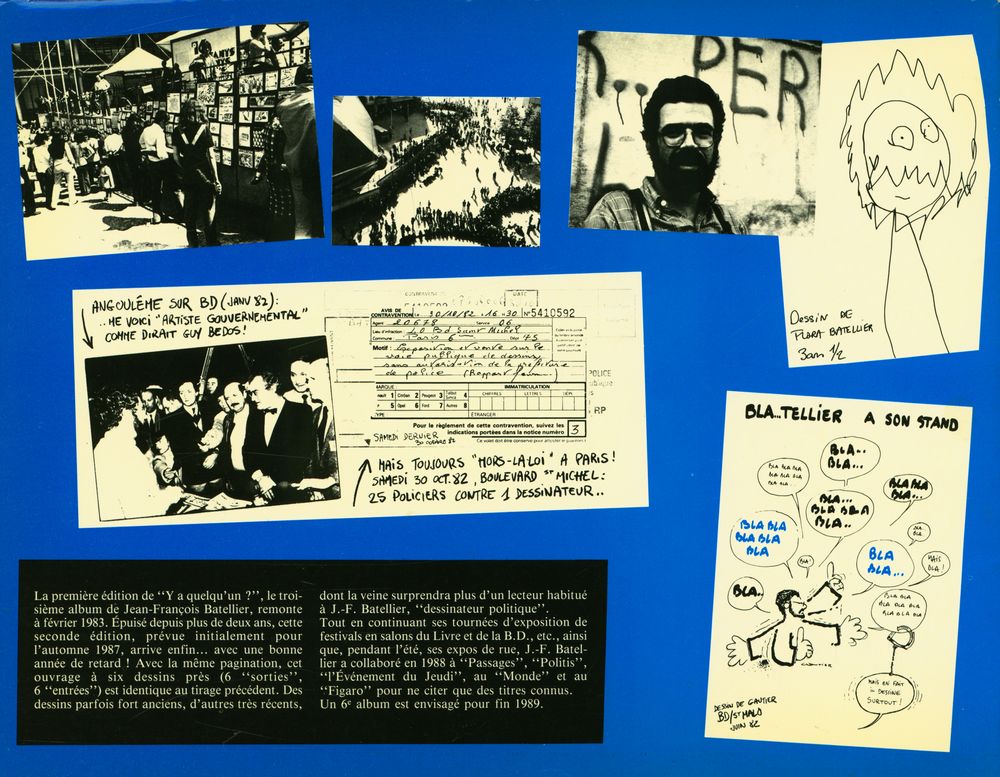 R... PER
DESSIN DE
FLORA BATELLIER
3ans 1/2
ANGOULÊME SUR BD (JANV 82):
..ME VOICI "ARTISTE GOUVERNEMENTAL"
COMME DIRAIT GUY BEDOS!
AVIS DE
CONTRAVENTION Le 30/10/82 16 30 N°5410592
Agent 20678 Service 06
Lieu d'infraction 40 Bd Saint Michel
Commune Paris 6 Dépt 75
Motif : Exposition et vente sur la
voie publique de dessins,
sans autorisation de la préfecture
de police
POLICE
RP
MARQUE IMMATRICULATION
1 Citroën 2 Peugeot 3 4 CHIFFRES LETTRES DÉP.
5 Opel 6 Ford 7 Autres 8
TYPE ÉTRANGER
Pour le règlement de cette contravention, suivez les
indications portées dans la notice numéro 3
SAMEDI DERNIER
30 OCTOBRE 82
MAIS TOUJOURS "HORS-LA-LOI" A PARIS!
SAMEDI 30 OCT. 82, BOULEVARD ST MICHEL:
25 POLICIERS CONTRE 1 DESSINATEUR..
BLA...TELLIER A SON STAND
BLA..
BLA...
BLA BLA BLA
BLA BLA BLA
BLA...
BLA BLA
BLA...
BLA...
BLA BLA BLA
BLA..
BLA BLA
BLA BLA
BLA
BLA
BLA
BLA...
BLA!
MAIS
BLA!
BLA..
BLA BLA
BLA BLA BLA
BLA BLA
MAIS EN FAIT
JE DESSINE
SURTOUT!
GAUTIER
DESSIN DE GAUTIER
BD/ST MALO
JUIN 82
La première édition de ‘‘Y a quelqu'un ?’’, le troi-
sième album de Jean-François Batellier, remonte
à février 1983. Épuisé depuis plus de deux ans, cette
seconde édition, prévue initialement pour
l'automne 1987, arrive enfin... avec une bonne
année de retard ! Avec la même pagination, cet
ouvrage à six dessins près (6 ‘‘sorties’’,
6 ‘‘entrées’’) est identique au tirage précédent. Des
dessins parfois fort anciens, d'autres très récents,
dont la veine surprendra plus d'un lecteur habitué
à J.-F. Batellier, ‘‘dessinateur politique’’.
Tout en continuant ses tournées d'exposition de
festivals en salons du Livre et de la B.D., etc., ainsi
que, pendant l'été, ses expos de rue, J.-F. Batel-
lier a collaboré en 1988 à ‘‘Passages’’, ‘‘Politis’’,
‘‘l'Événement du Jeudi’’, au ‘‘Monde’’ et au
‘‘Figaro’’ pour ne citer que des titres connus.
Un 6e album est envisagé pour fin 1989.